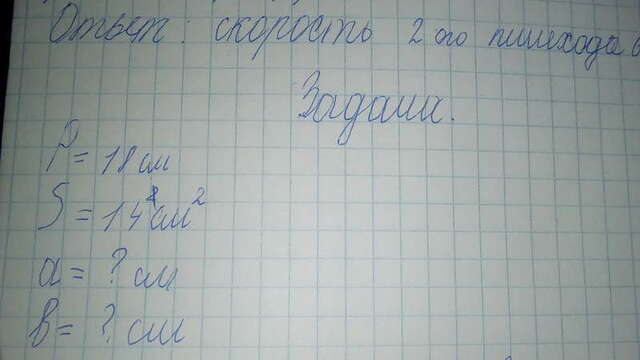 Ответ: скорость 2 ого пишехода 6
Задача.
P = 18 см
S = 14 см²
a = ? см
в = ? см